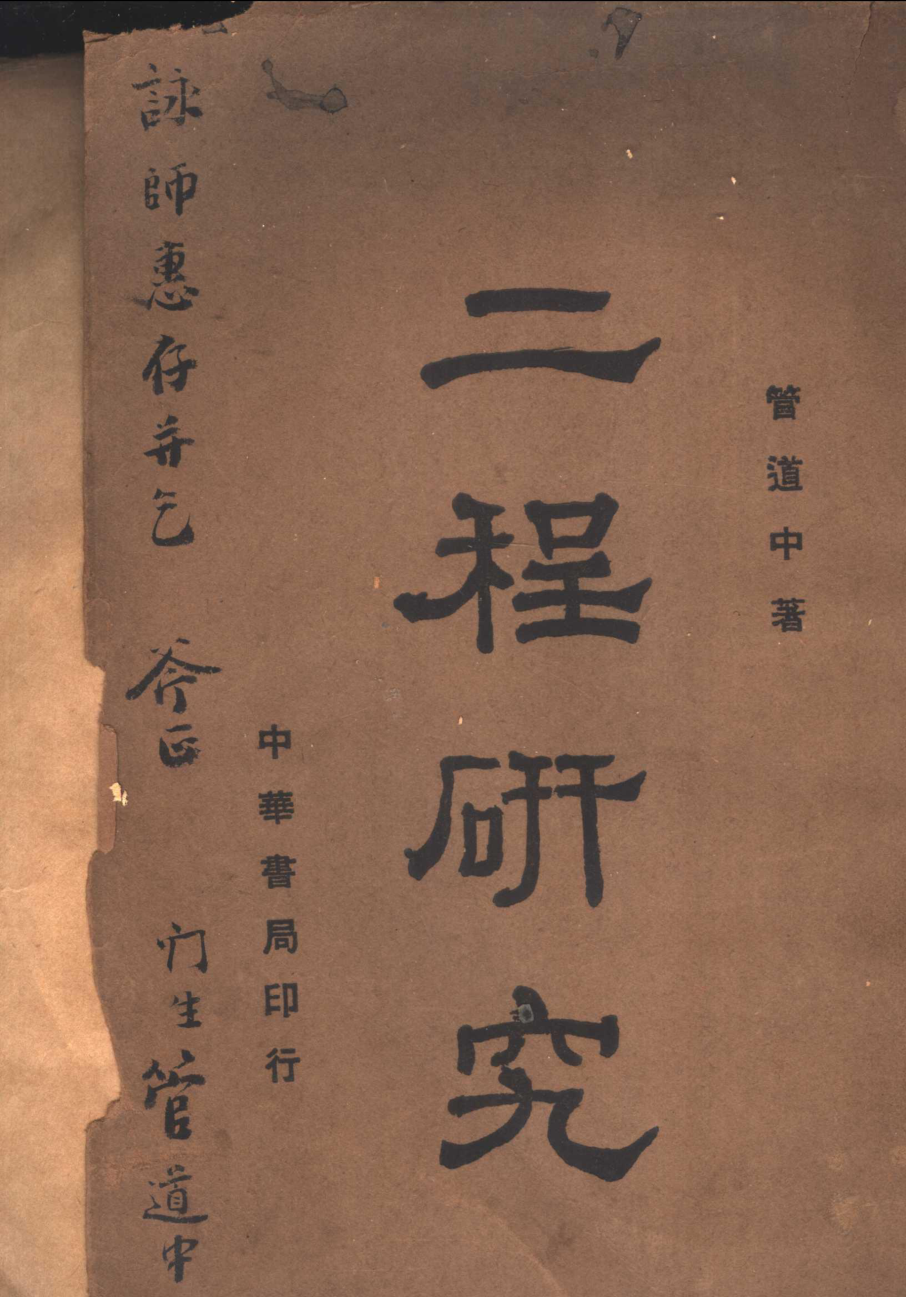 管道中著
二程研究
中華書局印行
詠師惠存并乞 斧正 门生管道中